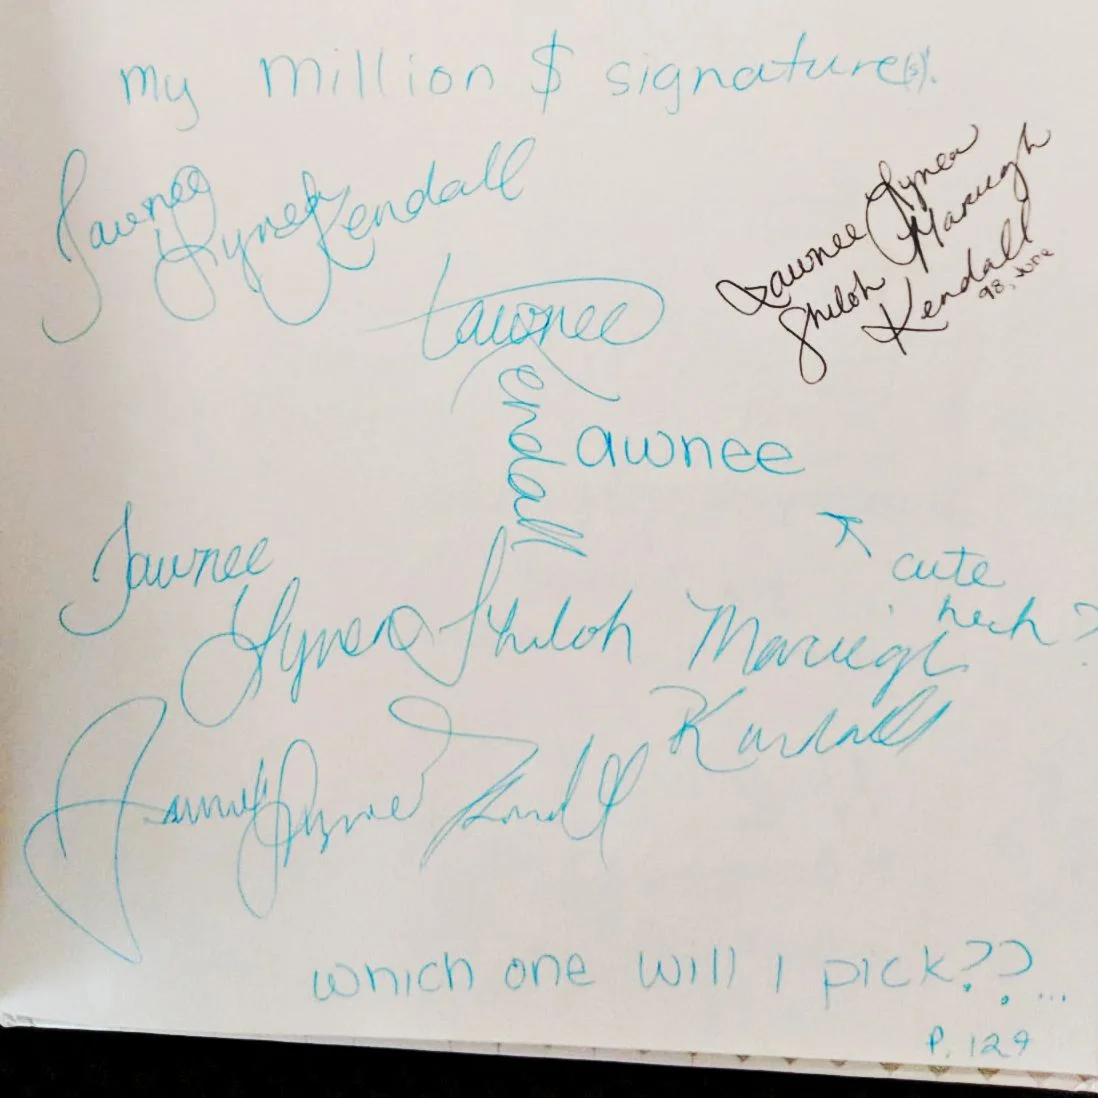 my million $ signature(s).
Tawnee
Lynea Kendall
Tawnee Lynea
Shiloh Marieigh
Kendall
98, June
tawnee
Kendall
awnee
cute
heh?
Tawnee
Lynea Shiloh Marieigh
Kendall
Tawnee Lynea Kendall
which one will I pick??...
P. 129